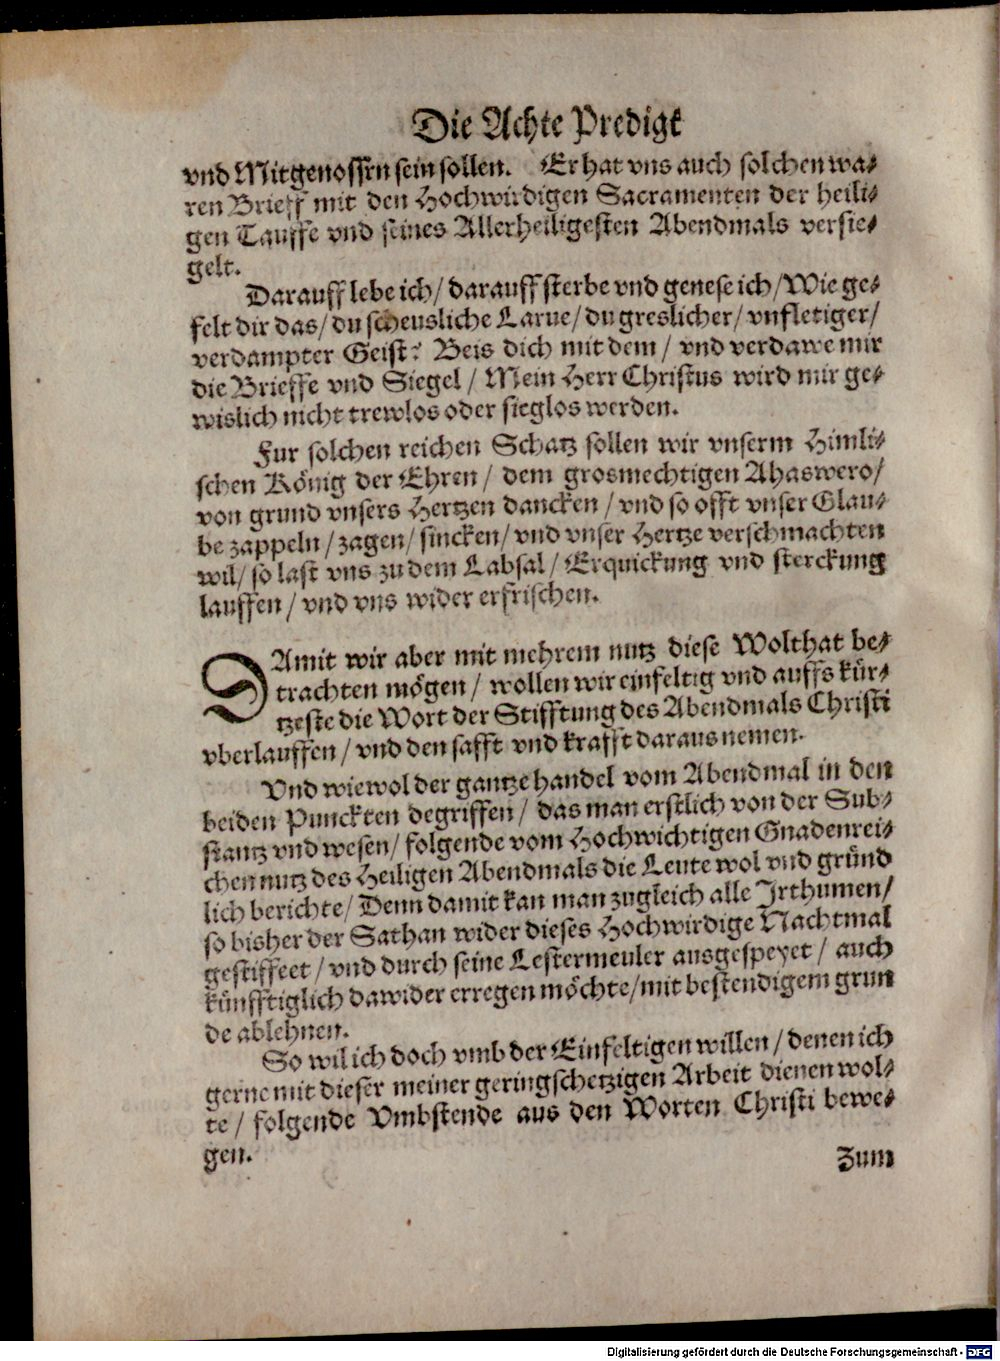 Die Achte Predigt
vnd Mitgenossen sein sollen. Er hat vns auch solchen wa-
ren Brieff mit den Hochwirdigen Sacramenten der heili-
gen Tauffe vnd seines Allerheiligesten Abendmals versie-
gelt.
Darauff lebe ich/ darauff sterbe vnd genese ich/ Wie ge-
felt dir das/ du scheusliche Larue/ du greslicher/ vnfletiger/
verdampter Geist? Beis dich mit dem/ vnd verdawe mir
die Brieffe vnd Siegel/ Mein Herr Christus wird mir ge-
wislich nicht trewlos oder sieglos werden.
Fur solchen reichen Schatz sollen wir vnserm Himli-
schen König der Ehren/ dem grosmechtigen Ahaswero/
von grund vnsers Hertzen dancken/ vnd so offt vnser Glau-
be zappeln/ zagen/ sincken/ vnd vnser Hertze verschmachten
wil/ so last vns zu dem Labsal/ Erquickung vnd sterckung
lauffen/ vnd vns wider erfrischen.
DAmit wir aber mit mehrem nutz diese Wolthat be-
trachten mögen/ wollen wir einfeltig vnd auffs kür-
tzeste die Wort der Stifftung des Abendmals Christi
vberlauffen/ vnd den safft vnd krafft daraus nemen.
Vnd wiewol der gantze handel vom Abendmal in den
beiden Punckten begriffen/ das man erstlich von der Sub-
stantz vnd wesen/ folgende vom Hochwichtigen Gnadenrei-
chen nutz des Heiligen Abendmals die Leute wol vnd gründ
lich berichte/ Denn damit kan man zugleich alle Irthumen/
so bisher der Sathan wider dieses Hochwirdige Nachtmal
gestiffeet/ vnd durch seine Lestermeuler ausgespeyet/ auch
künfftiglich dawider erregen möchte/ mit bestendigem grun
de ablehnen.
So wil ich doch vmb der Einfeltigen willen/ denen ich
gerne mit dieser meiner geringschetzigen Arbeit dienen wol-
te/ folgende Vmbstende aus den Worten Christi bewe-
gen.
Zum
Digitalisierung gefördert durch die Deutsche Forschungsgemeinschaft - DFG